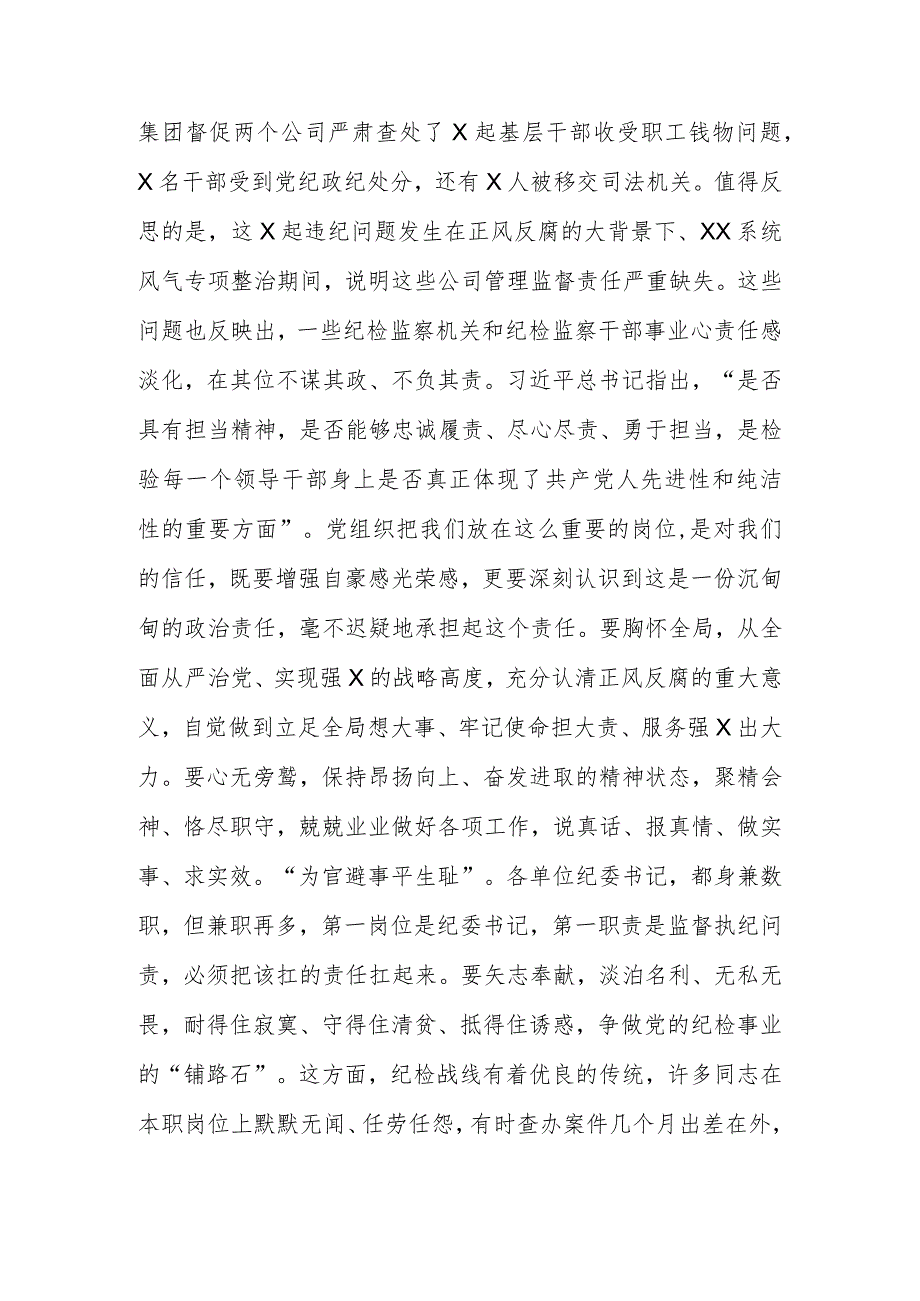 集团督促两个公司严肃查处了 X 起基层干部收受职工钱物问题，
X 名干部受到党纪政纪处分，还有 X 人被移交司法机关。值得反
思的是，这 X 起违纪问题发生在正风反腐的大背景下、XX 系统
风气专项整治期间，说明这些公司管理监督责任严重缺失。这些
问题也反映出，一些纪检监察机关和纪检监察干部事业心责任感
淡化，在其位不谋其政、不负其责。习近平总书记指出，“是否
具有担当精神，是否能够忠诚履责、尽心尽责、勇于担当，是检
验每一个领导干部身上是否真正体现了共产党人先进性和纯洁
性的重要方面”。党组织把我们放在这么重要的岗位,是对我们
的信任，既要增强自豪感光荣感，更要深刻认识到这是一份沉甸
甸的政治责任，毫不迟疑地承担起这个责任。要胸怀全局，从全
面从严治党、实现强 X 的战略高度，充分认清正风反腐的重大意
义，自觉做到立足全局想大事、牢记使命担大责、服务强 X 出大
力。要心无旁鹫，保持昂扬向上、奋发进取的精神状态，聚精会
神、恪尽职守，兢兢业业做好各项工作，说真话、报真情、做实
事、求实效。“为官避事平生耻”。各单位纪委书记，都身兼数
职，但兼职再多，第一岗位是纪委书记，第一职责是监督执纪问
责，必须把该扛的责任扛起来。要矢志奉献，淡泊名利、无私无
畏，耐得住寂寞、守得住清贫、抵得住诱惑，争做党的纪检事业
的“铺路石”。这方面，纪检战线有着优良的传统，许多同志在
本职岗位上默默无闻、任劳任怨，有时查办案件几个月出差在外，